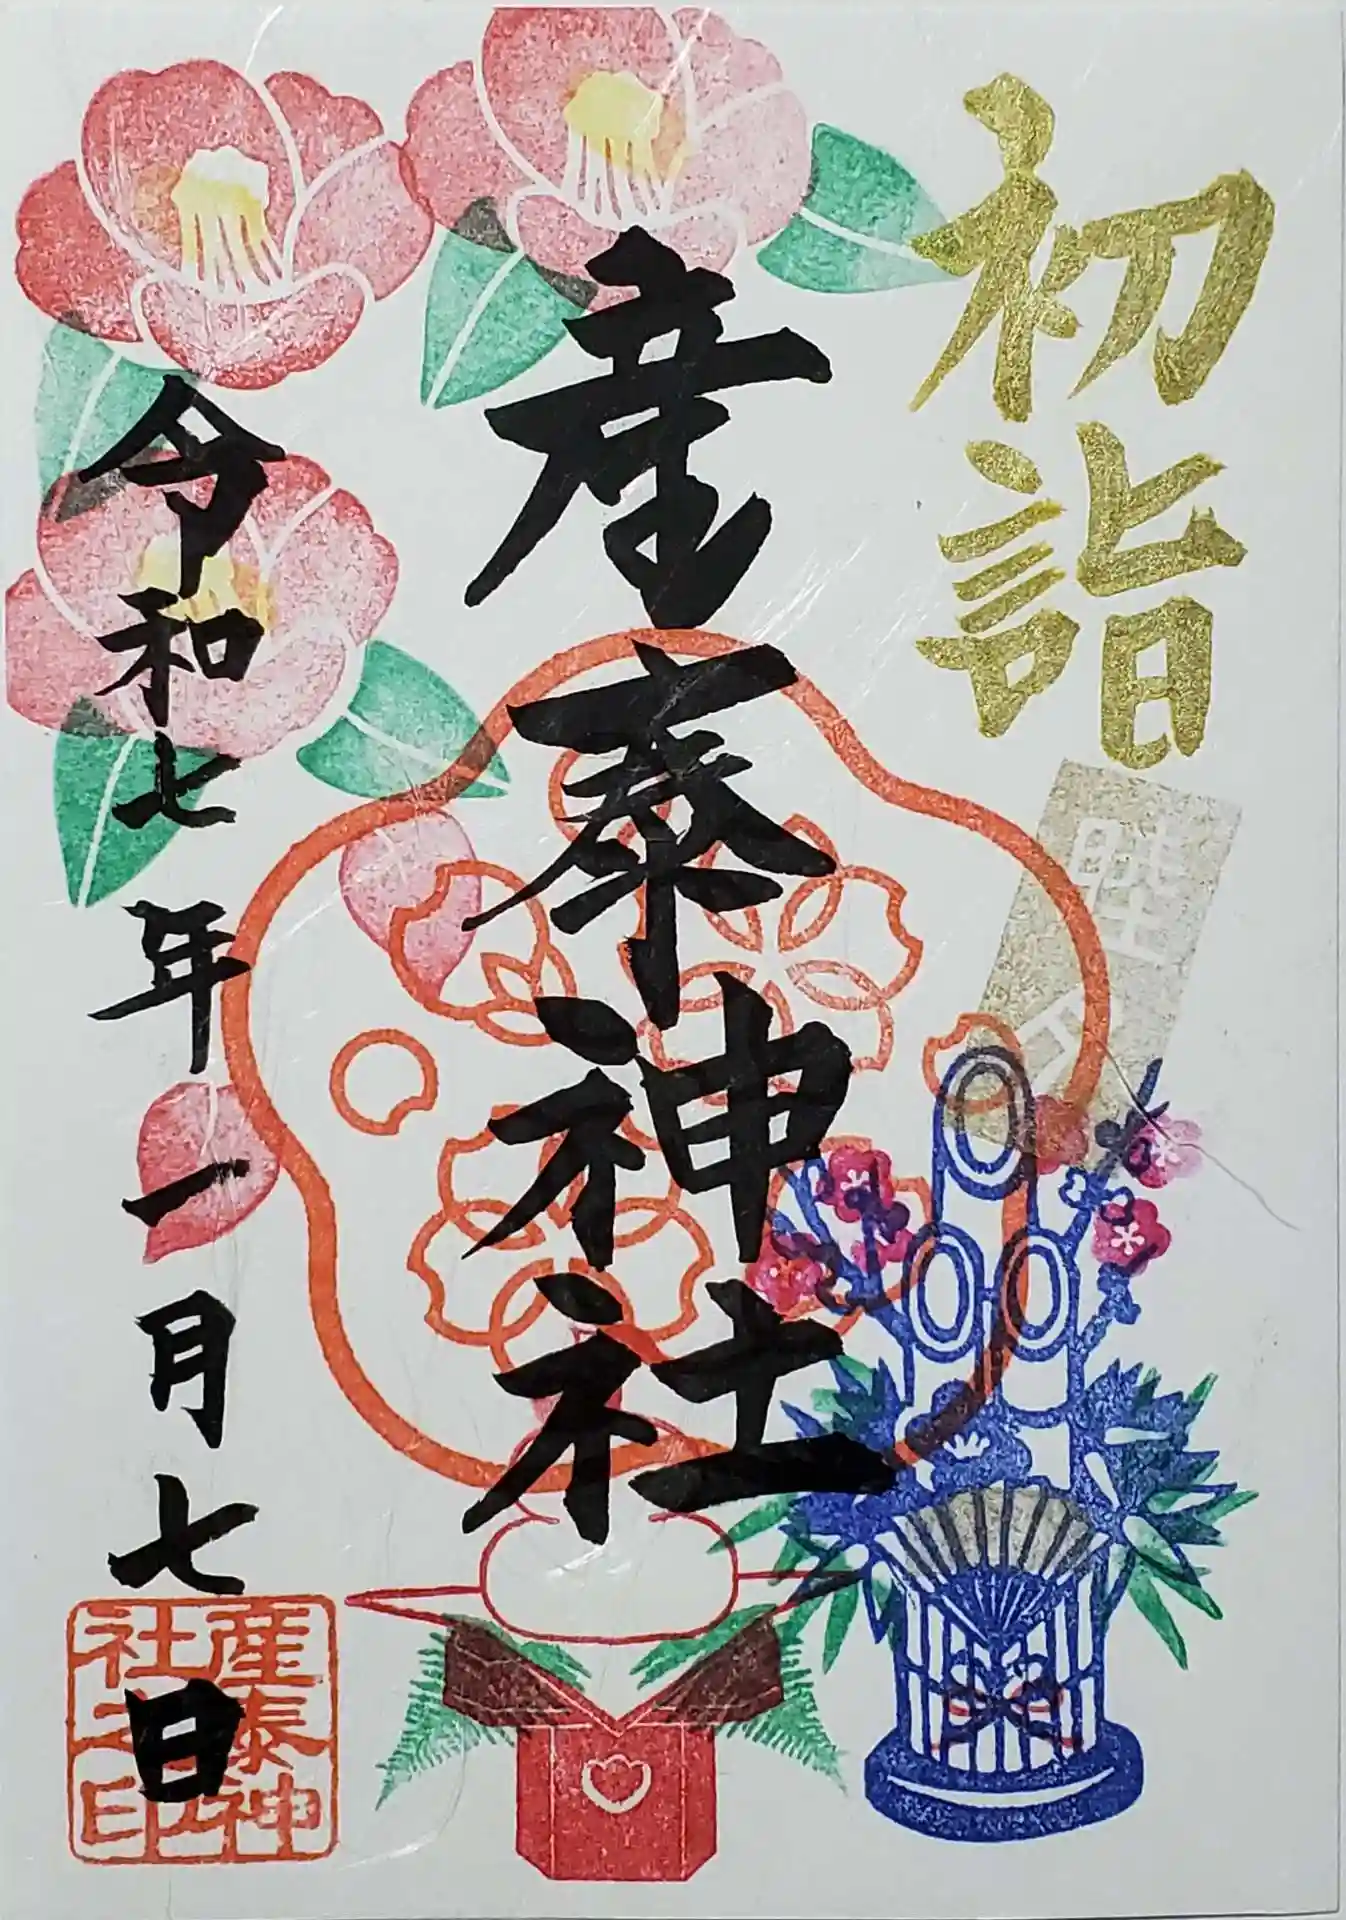 初詣
睦月
産泰神社
令和七年一月七日
産泰神
社之印